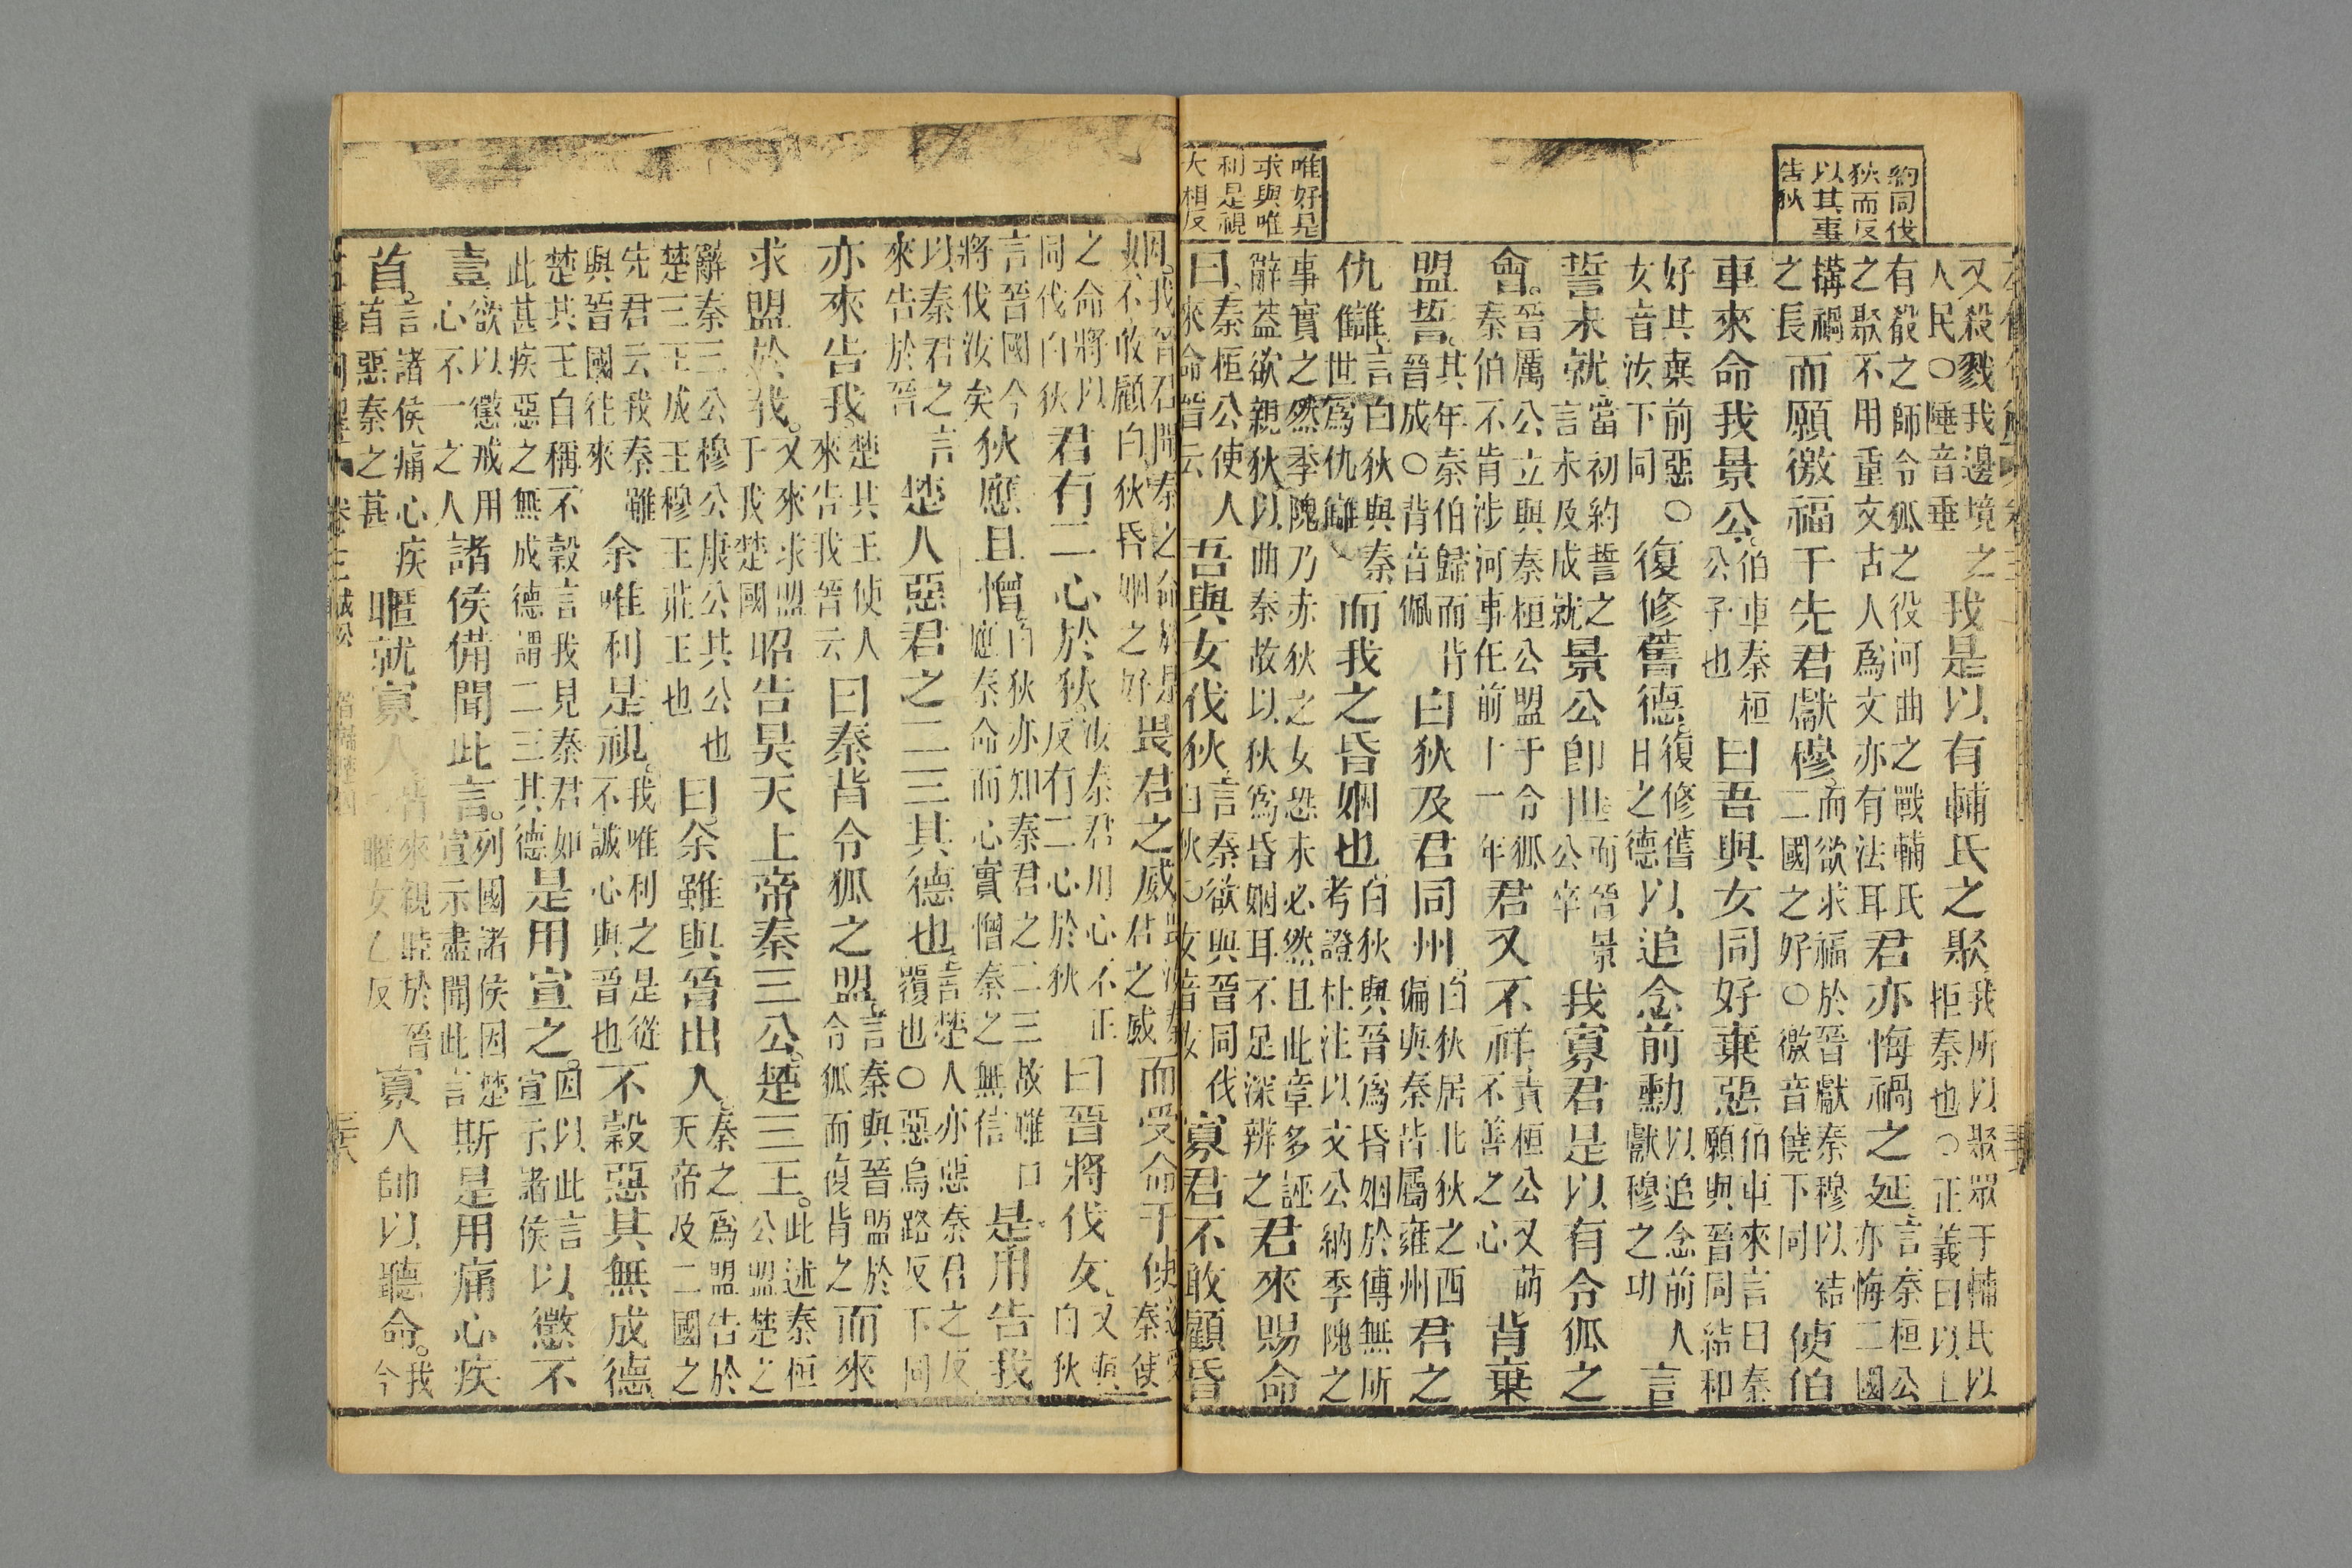 約同伐
狄而反
以其事
告狄
唯好是
求與唯
利是視
大相反
又殺戮我邊境之人民○陲音垂我是以有輔氏之聚我所以聚眾于輔氏以拒秦也○正義曰以上
有殽之師令狐之役河曲之戰輔氏之聚不用重文古人爲文亦有法耳君亦悔禍之延言秦桓公亦悔二國
搆禍之長而願徼福于先君獻穆而欲求福於晉獻秦穆以結二國之好○徼音僥下同使伯
車來命我景公伯車秦桓公子也曰吾與女同好棄惡伯車來言曰秦願與晉同結和
好其棄前惡○女音汝下同復修舊德復修舊日之德以追念前勳以追念前人獻穆之功言
誓未就當初約誓之言未及成就景公卽世而晉景公卒我寡君是以有令狐之
會晉厲公立與秦桓公盟于令狐秦伯不肯涉河事在前十一年君又不祥責桓公又萌不善之心背棄
盟誓其年秦伯歸而背晉成○背音佩白狄及君同州白狄居北狄之西偏與秦皆屬雍州君之
仇讎言白狄與秦世爲仇讎而我之昏姻也白狄與晉爲昏姻於傳無所考證杜注以文公納季隗之
事實之然季隗乃赤狄之女恐未必然且此章多誣辭葢欲親狄以曲秦故以狄爲昏姻耳不足深辨之君來賜命
曰秦桓公使人來命晉云吾與女伐狄言秦欲與晉同伐白狄○女音汝寡君不敢顧昏
姻我晉君聞秦之命於是不敢顧白狄昏姻之好畏君之威畏汝秦君之威而受命于使秦使
之命將以同伐白狄君有二心於狄汝秦君用心不正反有二心於狄曰晉將伐女又與白狄
言晉國今將伐汝矣狄應且憎白狄亦知秦君之二三故雖口應秦命而心實憎秦之無信是用告我
以秦君之言來告於晉楚人惡君之二三其德也言楚人亦惡秦君之反覆也○惡烏路反下同
亦來告我楚其王使人來告我晉云曰秦背令狐之盟言秦與晉盟於令狐而復背之而來
求盟於我又來求盟于我楚國昭告昊天上帝秦三公楚三王此述秦桓公盟楚之
辭秦三公穆公康公共公也楚三王成王穆王莊王也曰余雖與晉出入秦之爲盟告於天帝及二國之
先君云我秦雖與晉國往來余唯利是視我唯利之是從不誠心與晉也不穀惡其無成德
楚其王自稱不穀言我見秦君如此甚疾惡之無成德謂二三其德是用宣之因以此言宣示諸侯以懲不
壹欲以懲戒用心不一之人諸侯備聞此言列國諸侯因楚宣示盡聞此言斯是用痛心疾
首言諸侯痛心疾首惡秦之甚暱就寡人皆來親睦於晉暱女乙反寡人帥以聽命我今